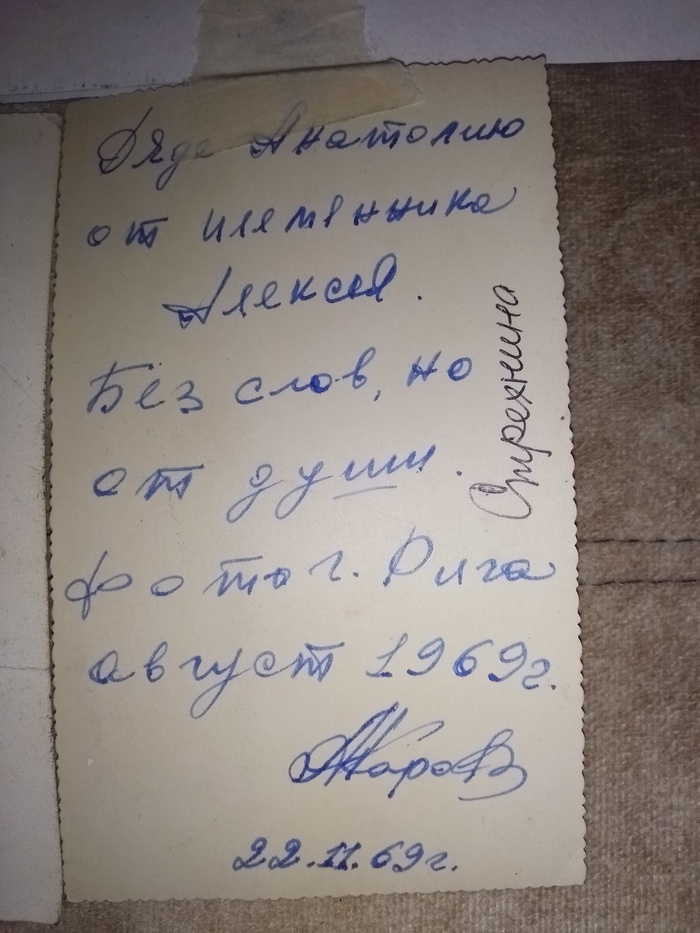 Дяде Анатолию
от племянника
Алексея.
Без слов, но
от души.
фото г. Рига
август 1969г.
22.11.69г.